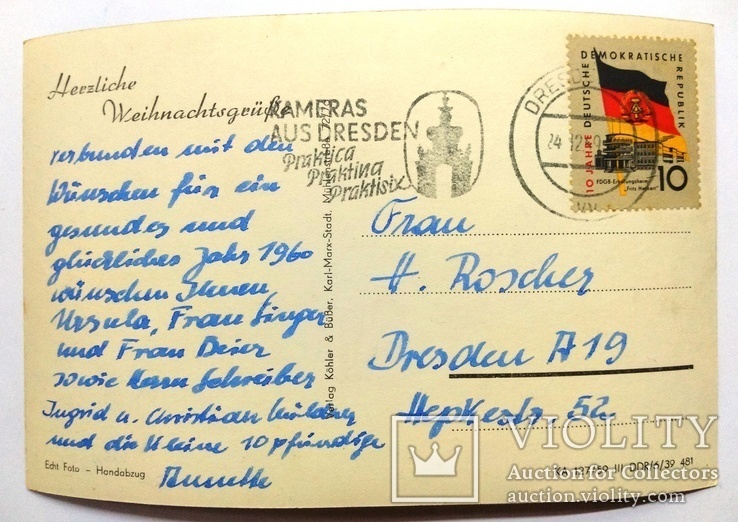 Herzliche
Weihnachtsgrüße
verbunden mit den
Wünschen für ein
gesundes und
glückliches Jahr 1960
wünschen Ihnen,
Ursula, Frau Singer
und Frau Beier
sowie Herrn Schreiber
Ingrid u. Christian
und die kleine 10 pfündige
Annette
Echt Foto – Handabzug
Verlag Köhler & Büßer, Karl-Marx-Stadt, Mühlenstraße
KAMERAS
AUS DRESDEN
Praktica
Praktina
Praktisix
DRESD
24.12.
10 JAHRE DEUTSCHE DEMOKRATISCHE REPUBLIK
FDGB-Erholungsheim
„Fritz Heckert“
10
Frau
H. Roscher
Dresden A 19
Hepkestr. 52
DDR/6/39 481
VIOLITY
Auction for Collectors
auction.violity.com